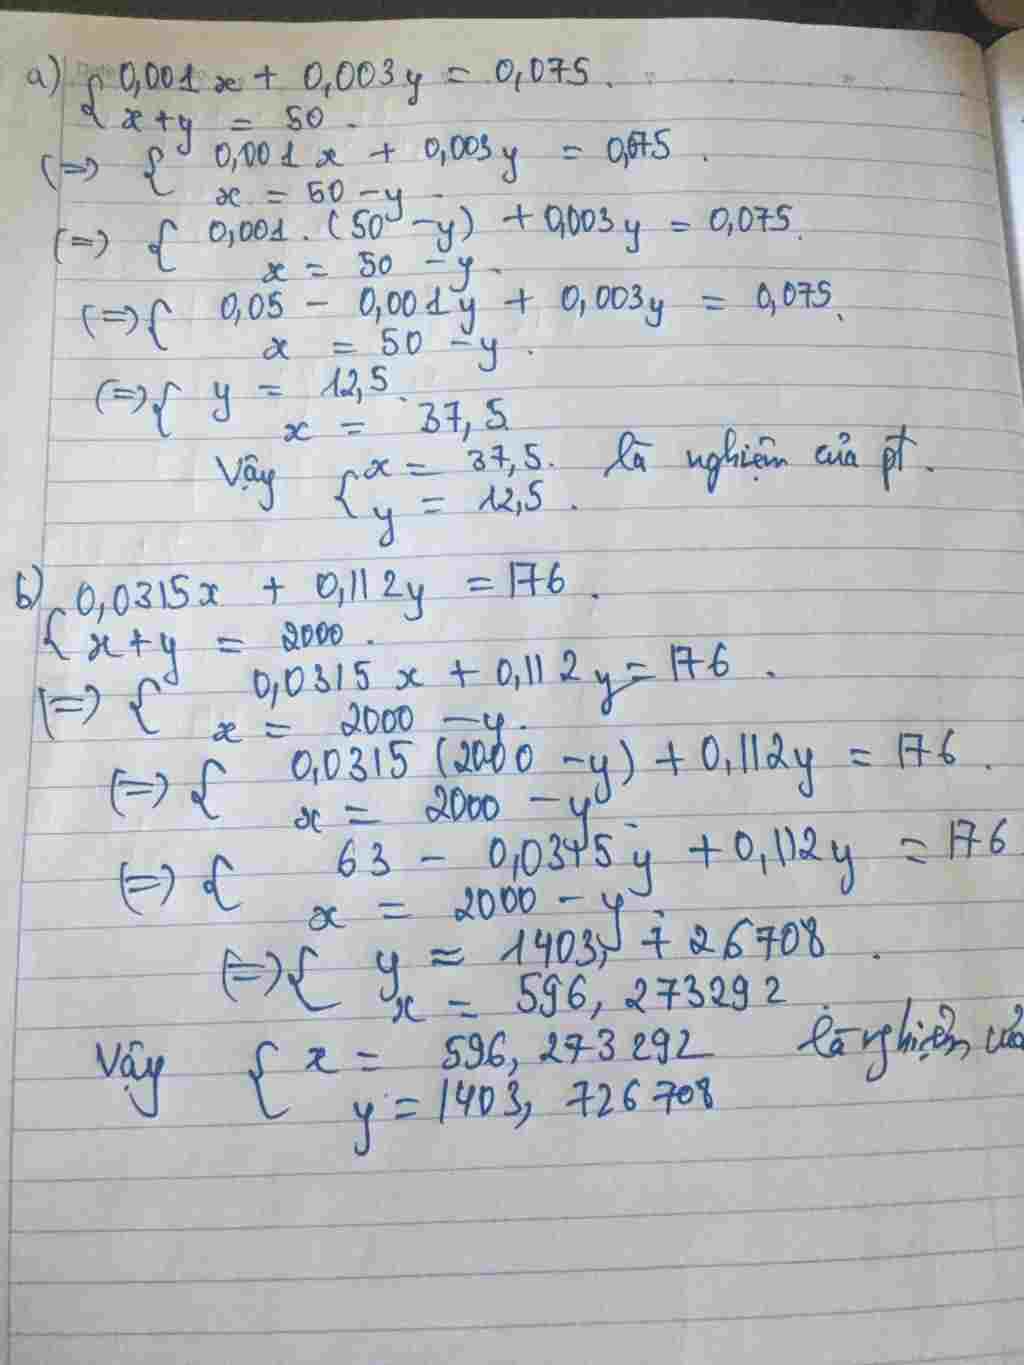 a) { 0,001x + 0,003y = 0,075.
x+y = 50.
(=) { 0,001x + 0,003y = 0,075.
x = 50 - y
(=) { 0,001.(50 - y) + 0,003y = 0,075.
x = 50 - y.
(=) { 0,05 - 0,001y + 0,003y = 0,075.
x = 50 - y.
(=) { y = 12,5.
x = 37,5.
Vậy { x = 37,5. là nghiệm của pt.
y = 12,5.
b) { 0,0315x + 0,112y = 176.
x+y = 2000.
(=) { 0,0315x + 0,112y = 176.
x = 2000 - y.
(=) { 0,0315(2000 - y) + 0,112y = 176.
x = 2000 - y
(=) { 63 - 0,0315y + 0,112y = 176
x = 2000 - y
(=) { y ≈ 1403,726708.
x = 596,273292.
Vậy { x = 596,273292 là nghiệm của
y = 1403,726708